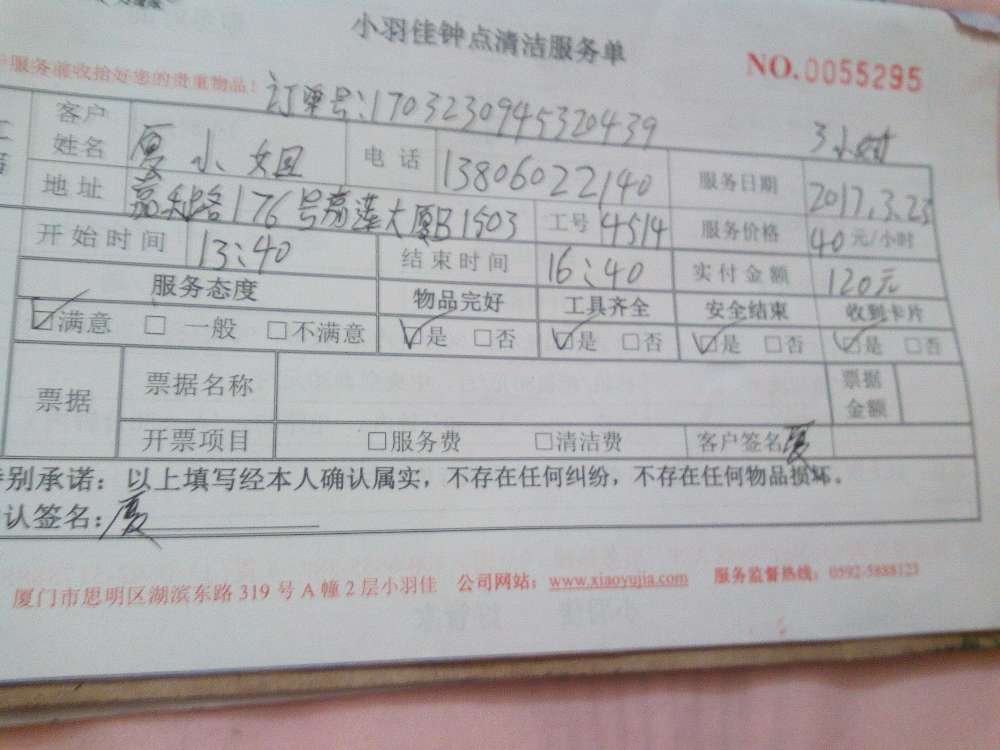 小羽佳钟点清洁服务单
NO.0055295
服务前收拾好您的贵重物品!
订单号:1703230945320439
3小时
客户姓名 厦小姐 电话 13806022140 服务日期 2017.3.23
地址 嘉禾路176号嘉莲大厦B1503 工号 4514 服务价格 40元/小时
开始时间 13:40 结束时间 16:40 实付金额 120元
服务态度 物品完好 工具齐全 安全结束 收到卡片
☑满意 □一般 □不满意 ☑是 □否 ☑是 □否 ☑是 □否 ☑是 □否
票据 票据名称 票据金额
开票项目 □服务费 □清洁费 客户签名 厦
特别承诺:以上填写经本人确认属实,不存在任何纠纷,不存在任何物品损坏。
认签名:厦
厦门市思明区湖滨东路319号A幢2层小羽佳 公司网站:www.xiaoyujia.com 服务监督热线:0592-5888123